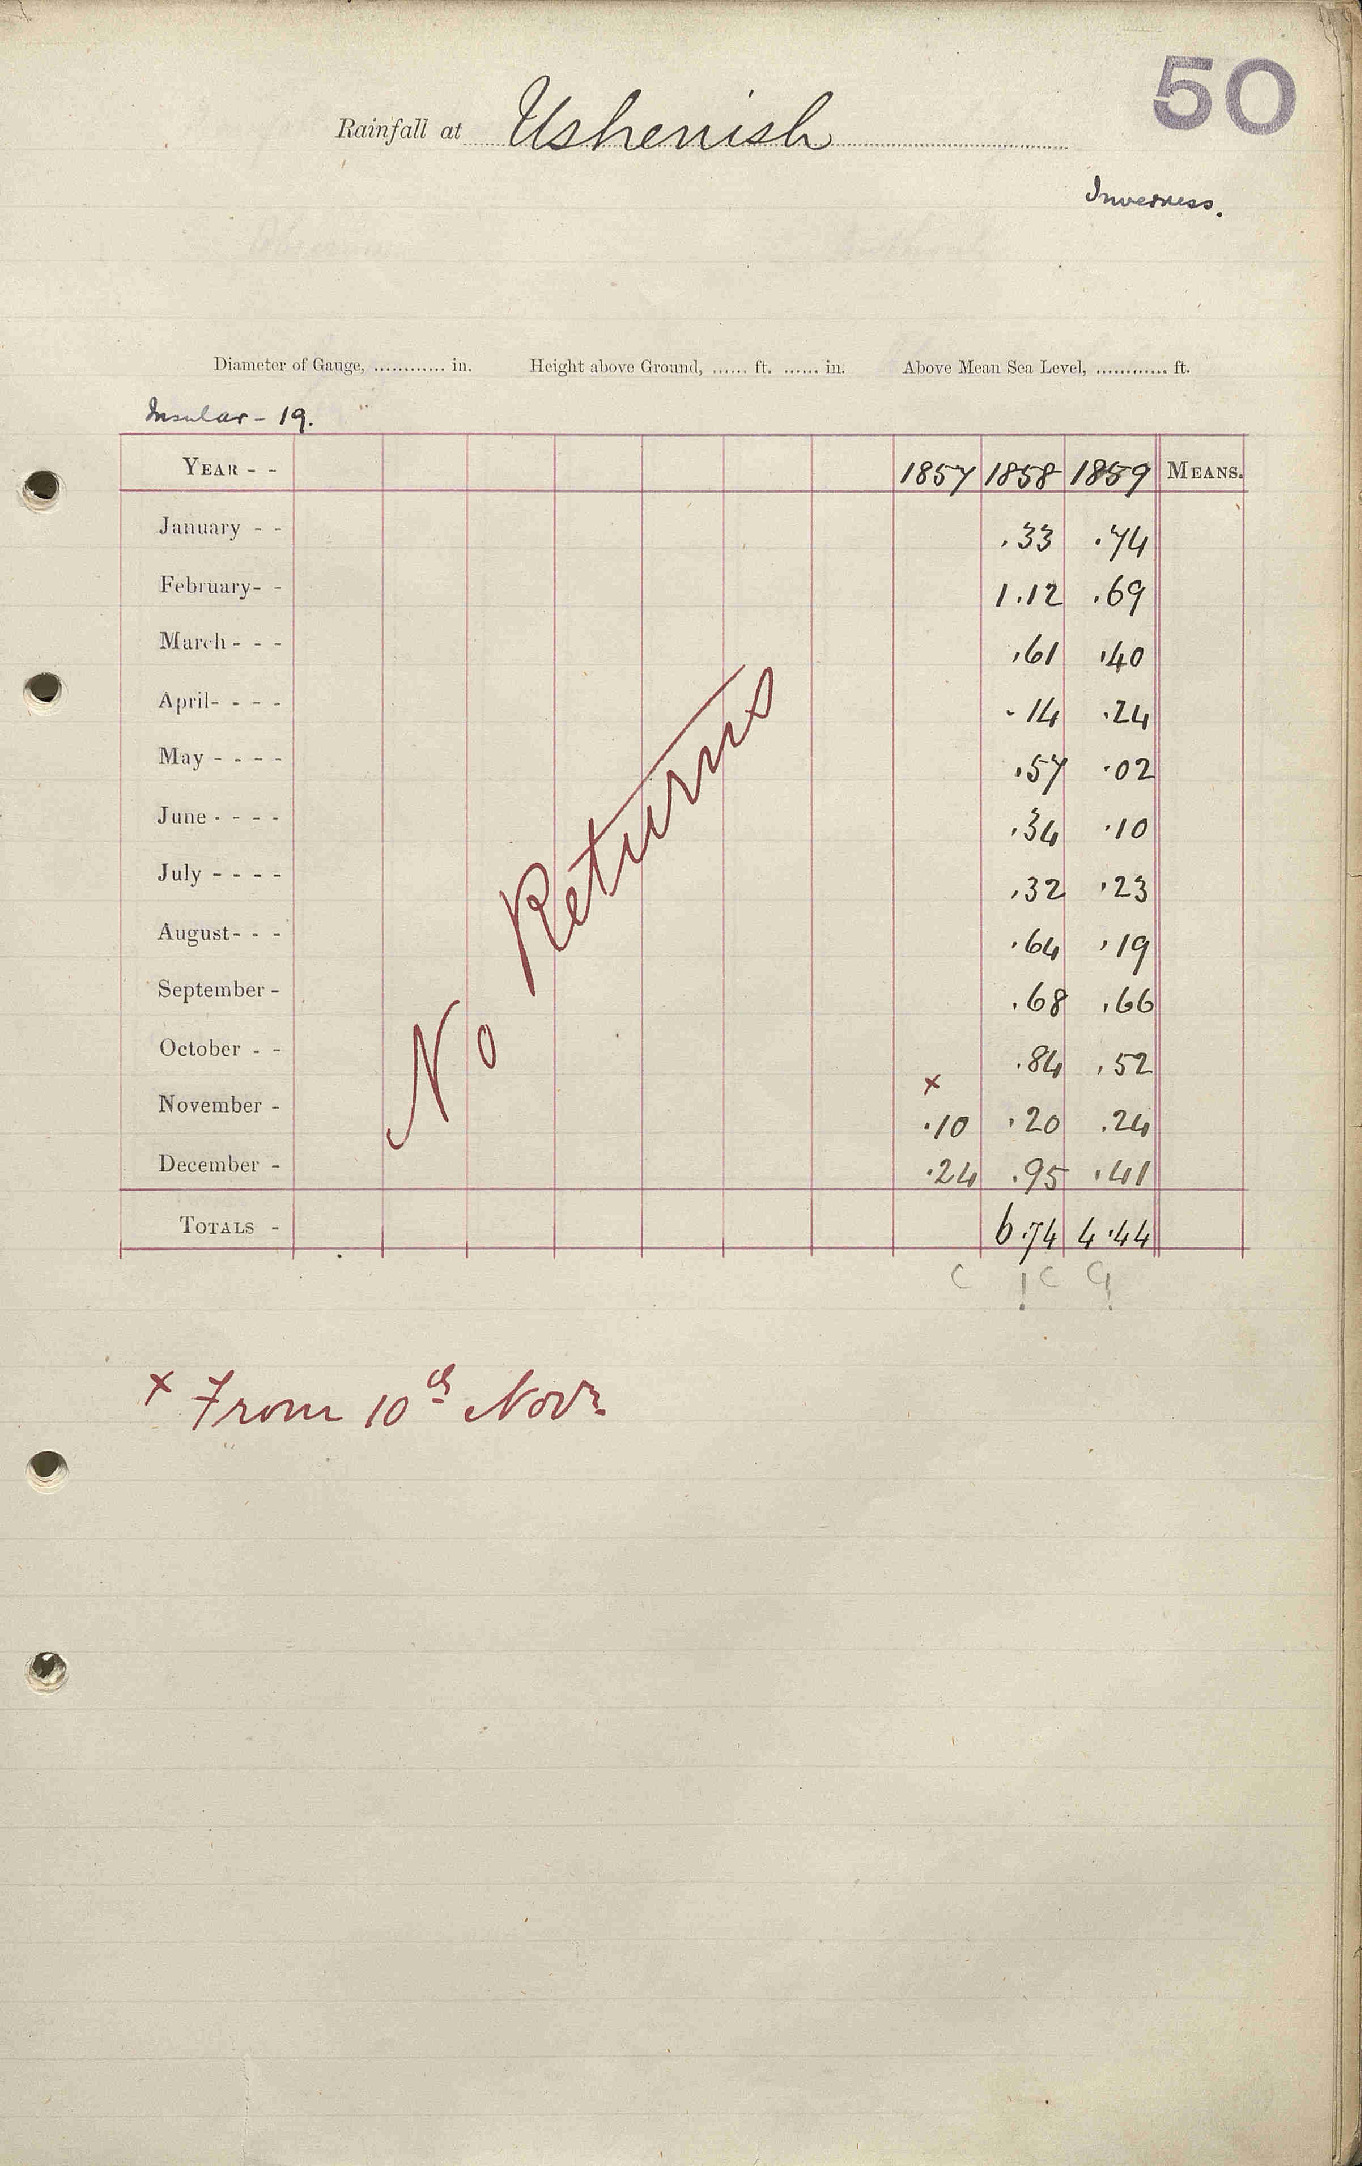 50
Rainfall at Ushenish
Inverness.
Diameter of Gauge, ............ in. Height above Ground, ...... ft. ...... in. Above Mean Sea Level, ............ ft.
Insular - 19.
YEAR - - 1857 1858 1859 MEANS.
January - - .33 .74
February - - 1.12 .69
March - - - .61 .40
April - - - - .14 .24
May - - - - .57 .02
June - - - - .34 .10
July - - - - .32 .23
August - - - .64 .19
September - .68 .66
October - - .84 .52
x
November - .10 .20 .24
December - .24 .95 .41
TOTALS - 6.74 4.44
No Returns
C ! C C !
x From 10th Novr.